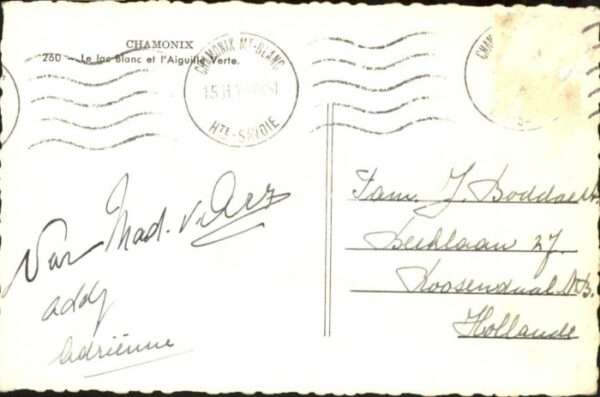 CHAMONIX
260 - Le lac Blanc et l'Aiguille Verte.
CHAMONIX MT-BLANC
15H
HTE-SAVOIE
CHAM
Mad. v.
addy
adriënne
Fam. J. Boddaert
Beeklaan 27.
Roosendaal N.B.
Hollande